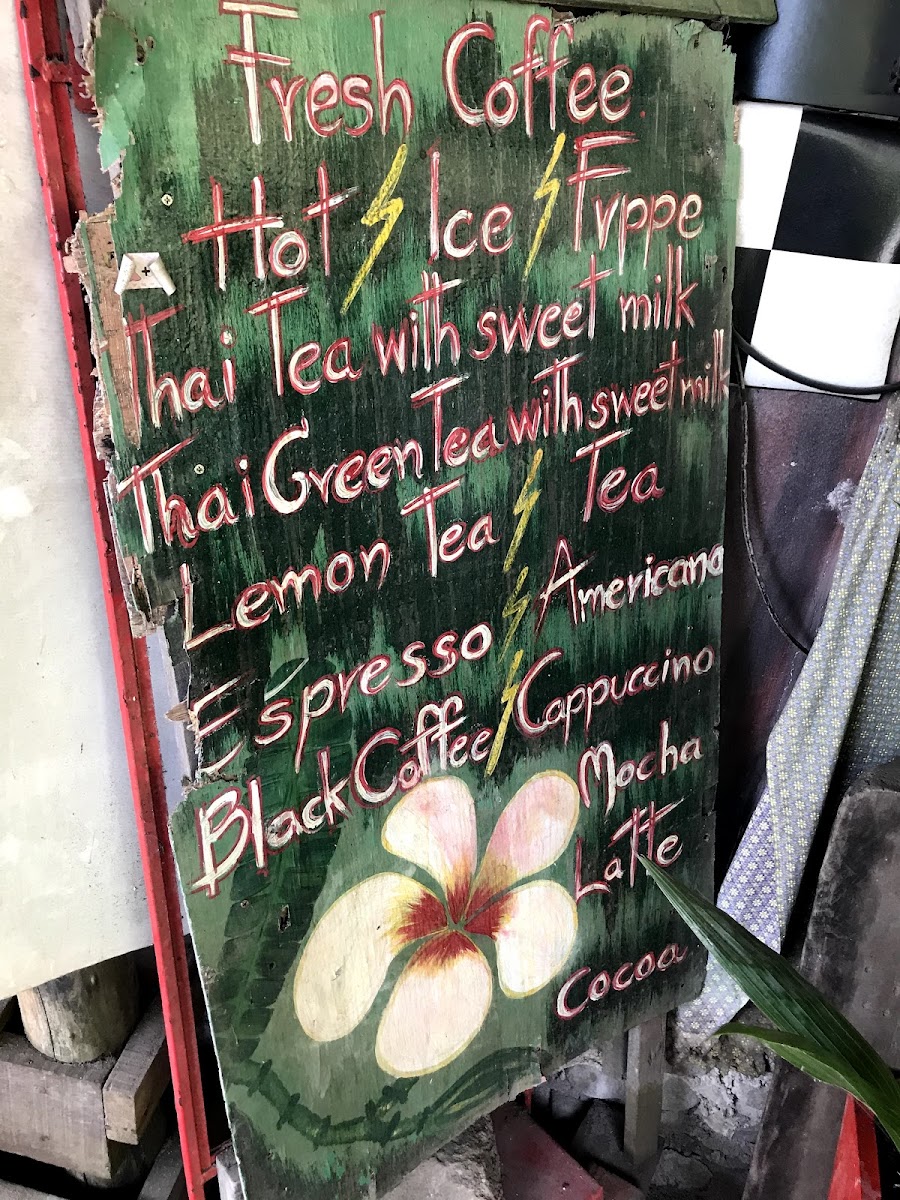 Fresh Coffee
Hot Ice Frppe
Thai Tea with sweet milk
Thai Green Tea with sweet milk
Lemon Tea Tea
Espresso Americano
Black Coffee Cappuccino
Mocha
Latte
Cocoa